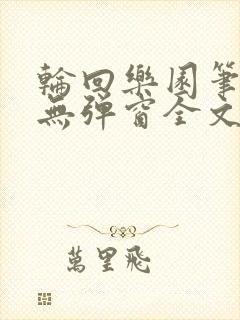 輪回樂園筆
無彈窗全文
萬里飛